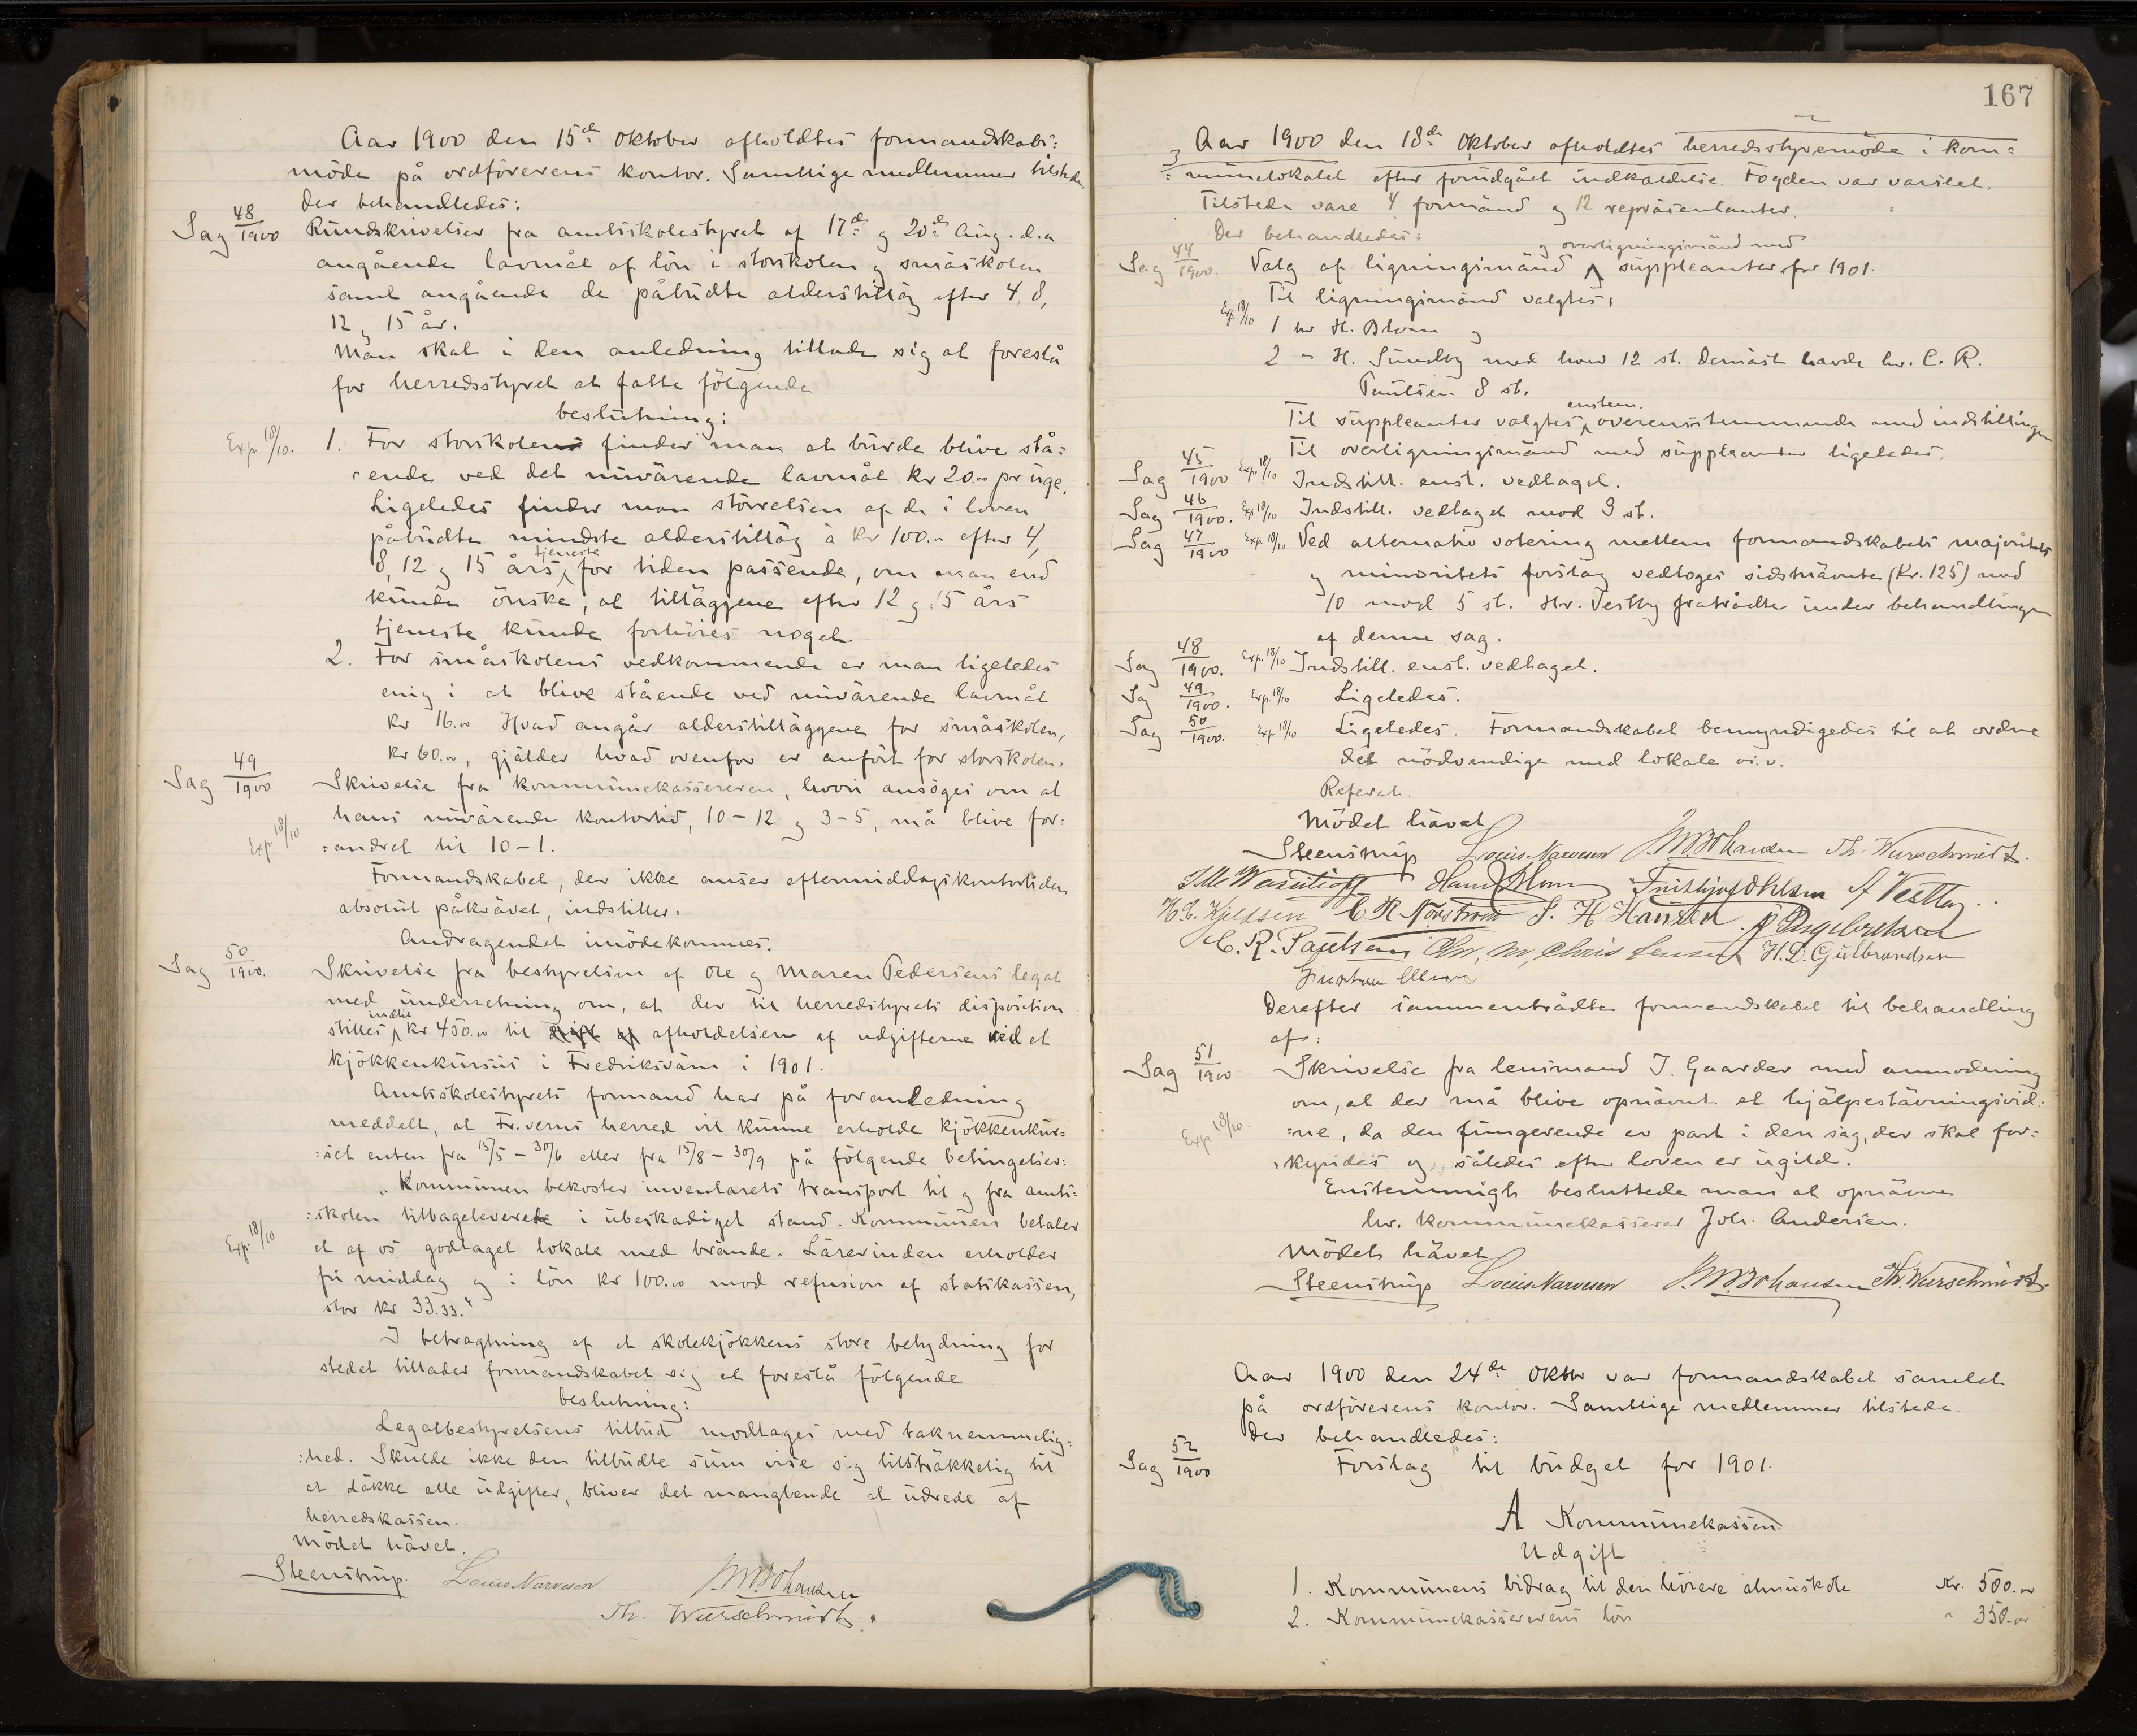 Aar 1900 den 15de Oktober afholdtes formandskabs=
möde på ordförerens kontor. Samtlige medlemmer tilstede.
Der behandledes:
Sag 48/1900 Rundskrivelser fra amtsskolestyret af 17de og 20de Aug. d.a
angående lavmål af lön i storskolen og småskolen
samt angående de påbudte alderstillæg efter 4, 8,
12 og 15 år.
Man skal i den anledning tillade sig at foreslå
for herredsstyret at fatte fölgende
beslutning:
Exp. 18/10. 1. For storskolen finder man at burde blive stå=
ende ved det nuværende lavmål kr 20.00 pr uge.
Ligeledes finder man störrelsen af de i loven
påbudte mindste alderstillæg à kr 100.- efter 4,
8, 12 og 15 års tjeneste for tiden passende, om man end
kunde önske, at tillæggene efter 12 og 15 års
tjeneste kunde forhöies noget.
2. For småskolens vedkommende er man ligeledes
enig i at blive stående ved nuværende lavmål
kr 16.00 Hvad angår alderstillæggene for småskolen,
kr 60.00, gjælder hvad ovenfor er anfört for storskolen.
Sag 49/1900 Skrivelse fra kommunekassereren, hvori ansöges om at
hans nuværende kontortid, 10-12 og 3-5, må blive for=
Exp. 18/10 =andret til 10-1.
Formandskabet, der ikke anser eftermiddagskontortiden
absolut påkrævet, indstiller:
Andragendet imödekommes.
Sag 50/1900. Skrivelse fra bestyrelsen af Ole og Maren Pedersens legat
med underretning om, at der til herredsstyrets disposition
stilles indtil kr 450.00 til drift af afholdelsen af udgifterne ved et
kjökkenkursus i Fredriksværn i 1901.
Amtsskolestyrets formand har på foranledning
meddelt, at Fr.verns herred vil kunne erholde kjökkenkur=
=set enten fra 15/5 - 30/6 eller fra 15/8 - 30/9 på fölgende betingelser:
"Kommunen bekoster inventarets transport til og fra amts=
=skolen tilbageleveret i ubeskadiget stand. Kommunen betaler
Exp. 18/10 et af os godtaget lokale med brænde. Lærerinden erholder
fri middag og i lön kr 100.00 mod refusion af statskassen,
stor kr 33.33."
I betragtning af et skolekjökkens store betydning for
stedet tillader formandskabet sig at foreslå fölgende
beslutning:
Legatbestyrelsens tilbud modtages med taknemmelig=
=hed. Skulde ikke den tilbudte sum vise sig tilstrækkelig til
at dække alle udgifter, bliver det manglende at udrede af
herredskassen.
Mödet hævet.
Steenstrup. Louis Narvesen J. M. Johansen
Th. Wurschmidt.
167
Aar 1900 den 18de Oktober afholdtes herredsstyremöde i kom=
=munelokalet efter forudgået indkaldelse. Fogden var varslet.
Tilstede vare 4 formænd og 12 repræsentanter.
Der behandledes:
og overligningsmænd med
Sag 44/1900. Valg af ligningsmænd suppleanter for 1901.
Til ligningsmænd valgtes:
Exp 18/10 1 hr H. Blom og
2 " H. Sundby med hver 12 st. Dernæst havde hr. C. R.
Paulsen 8 st.
enstem.
Til suppleanter valgtes overensstemmende med indstillingen
Til overligningsmænd med suppleanter ligeledes.
Sag 45/1900 Exp. 18/10 Indstill. enst. vedtaget.
Sag 46/1900. Exp 18/10 Indstill. vedtaget mod 9 st.
Sag 47/1900 Exp. 18/10 Ved alternativ votering mellem formandskabets majoritets
og minoritets forslag vedtoges sidstnævnte (Kr. 125) med
10 mod 5 st. Hr. Vestby fratrådte under behandlingen
af denne sag.
Sag 48/1900. Exp. 18/10 Indstill. enst. vedtaget.
Sag 49/1900. Exp. 18/10 Ligeledes.
Sag 50/1900. Exp 18/10 Ligeledes. Formandskabet bemyndigedes til at ordne
det nödvendige med lokale o.s.v.
Referat.
Mödet hævet
Steenstrup Louis Narvesen J. M. Johansen Th. Wurschmidt.
Hans Blom Frithjof Ohlsen A Vestby
H. C. Kjeldsen C. R. Norström S. H Hansen. P Engebretsen
C. R. Paulsen Chr, M, Christensen H. D. Gulbrandsen
Derefter sammentrådte formandskabet til behandling
af:
Sag 51/1900 Skrivelse fra lensmand J. Gaarder med anmodning
om, at der må blive opnævnt et hjælpestævningsvid=
Exp 18/10. =ne, da den fungerende er part i den sag, der skal for=
=kyndes og således efter loven er ugild.
Enstemmigt besluttede man at opnævne
hr. kommunekasserer Joh. Andersen.
Mödet hævet
Steenstrup Louis Narvesen J. M. Johansen Th. Wurschmidt.
Aar 1900 den 24de Oktbr var formandskabet samlet
på ordförerens kontor. Samtlige medlemmer tilstede.
Der behandledes:
Sag 52/1900 Forslag til budget for 1901.
A Kommunekassen.
Udgift
1. Kommunens bidrag til den höiere almuskole Kr. 500.00
2. Kommunekassererens lön " 350.00